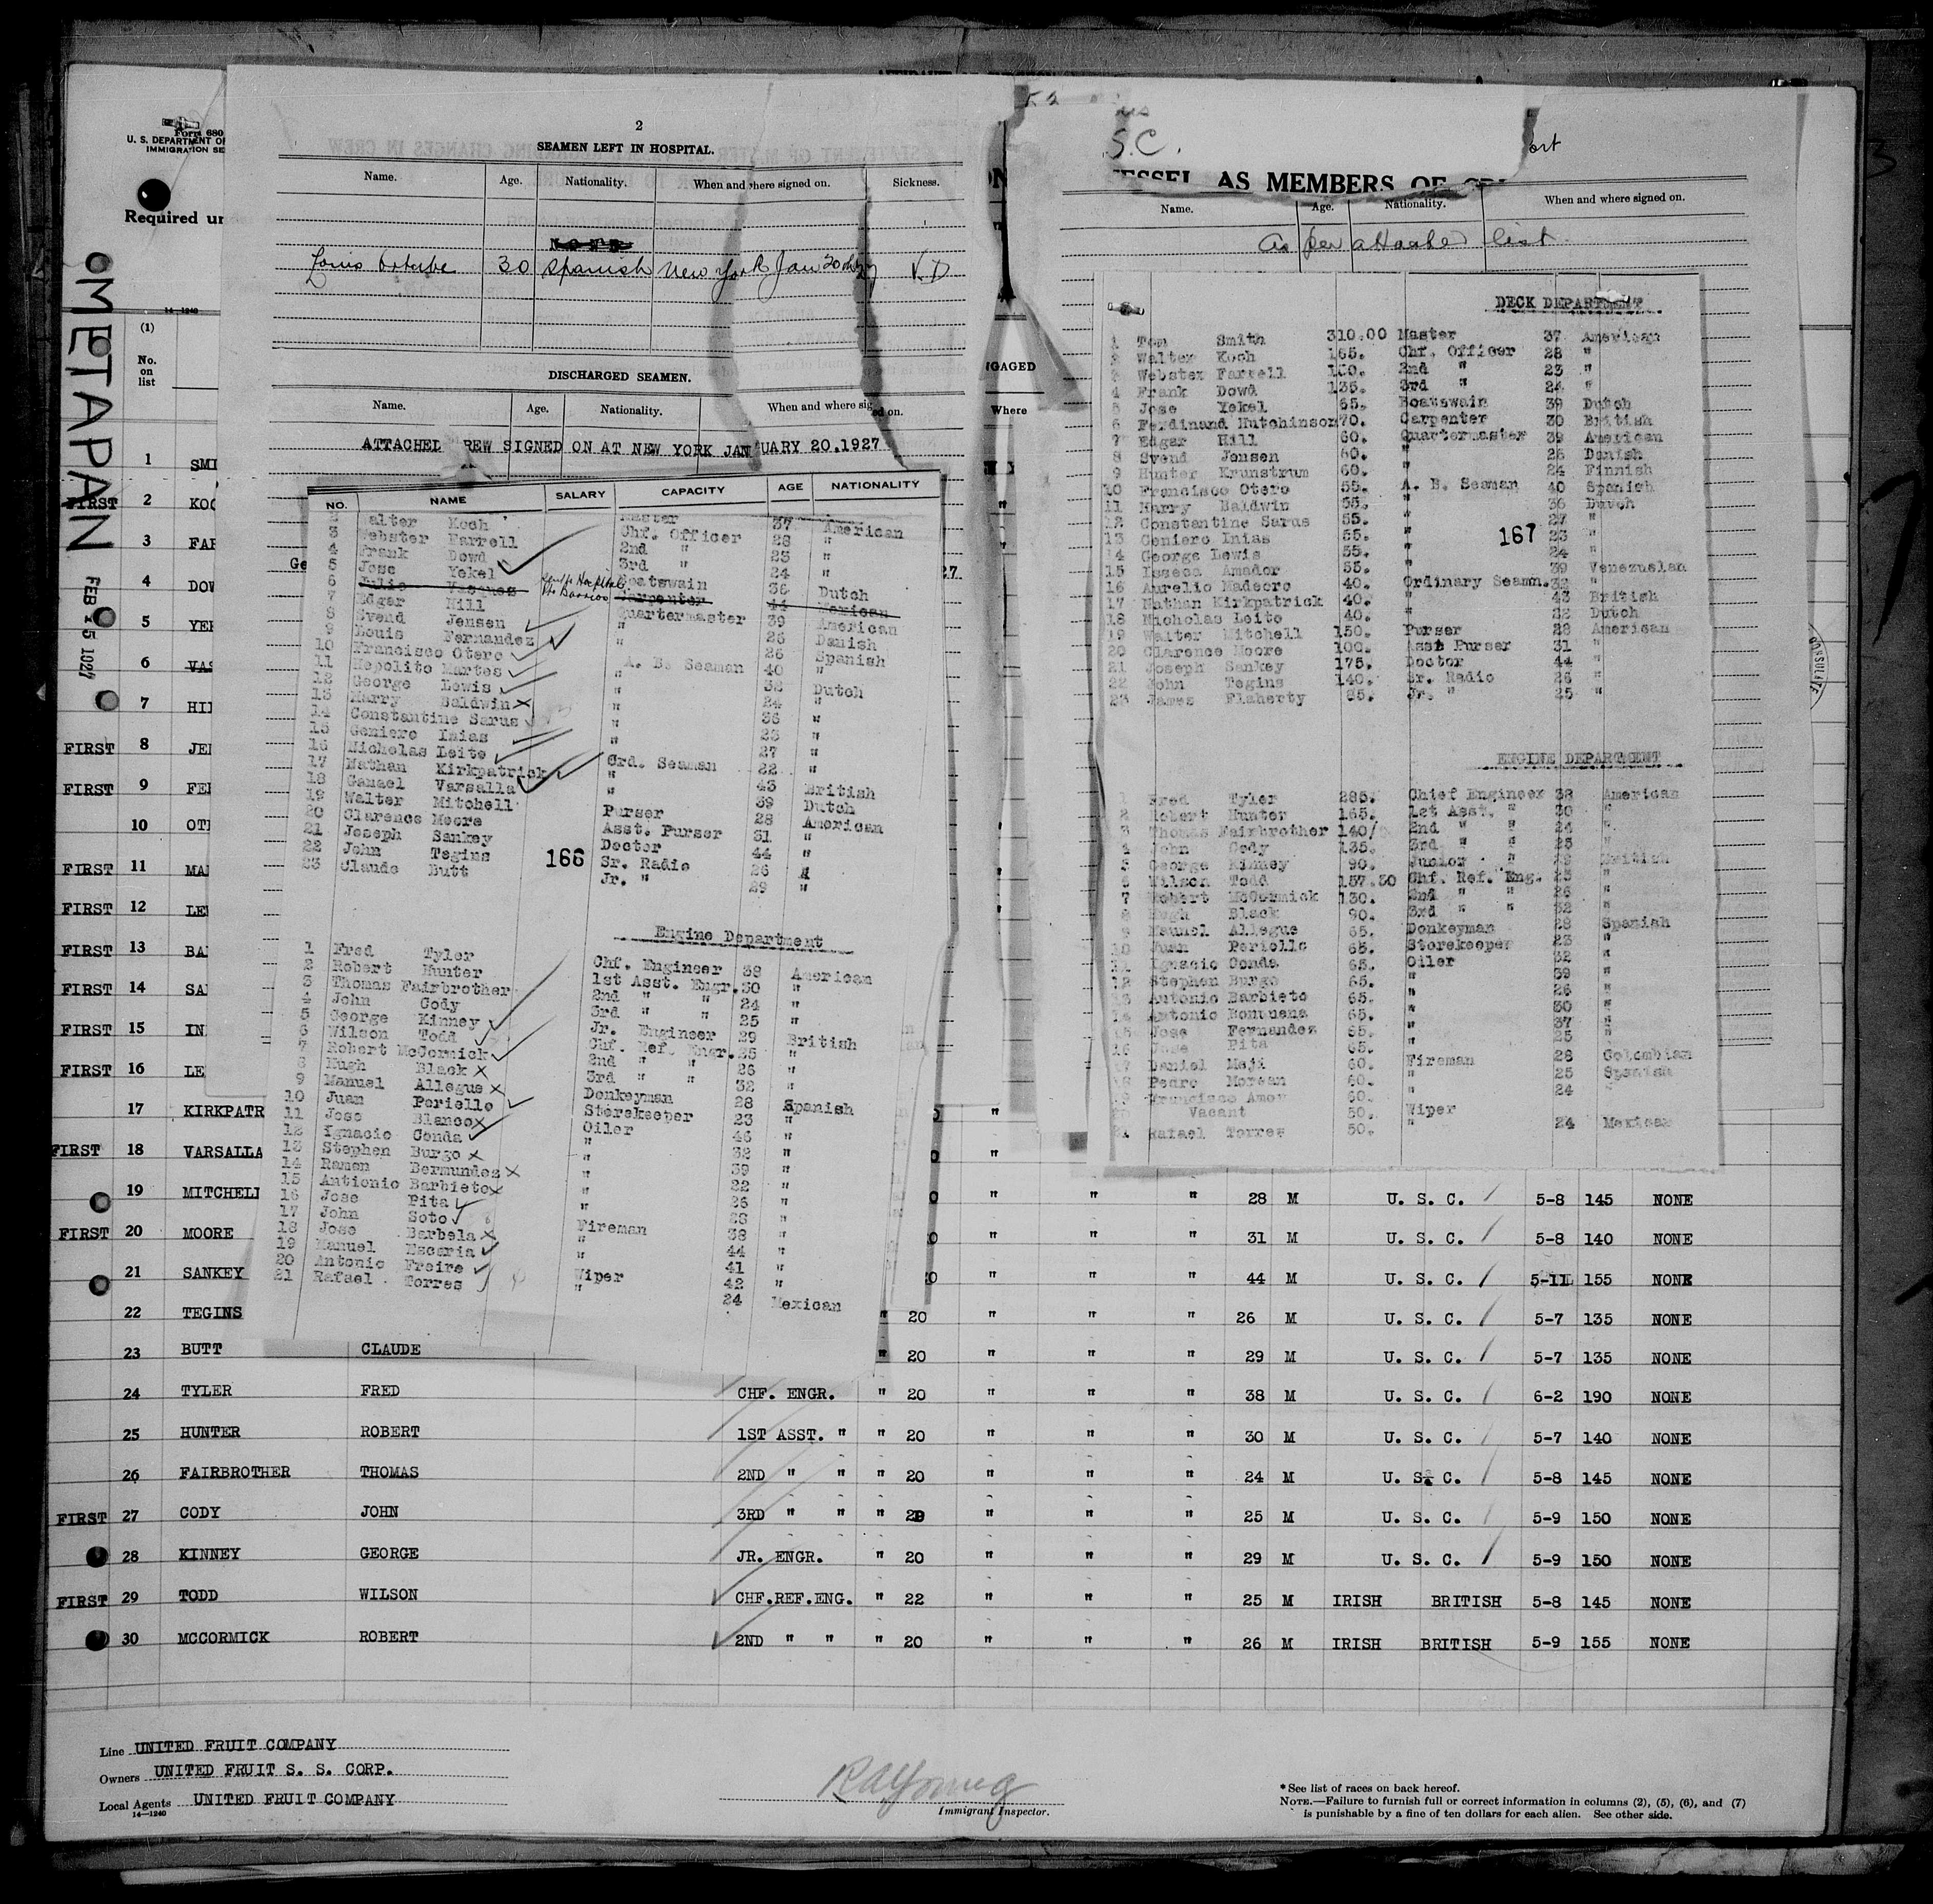 Form 680
U. S. DEPARTMENT OF
IMMIGRATION SE
Required un
OMETAPAN
14-1240
(1)
No.
on
list
1 SMI
FIRST 2 KOC
3 FAR
4 DOW
5 YEK
6 VAS
7 HIL
FIRST 8 JEN
FIRST 9 FER
10 OTE
FIRST 11 MAR
FIRST 12 LEW
FIRST 13 BAL
FIRST 14 SAR
FIRST 15 IN
FIRST 16 LE
17 KIRKPATR
FIRST 18 VARSALLA
19 MITCHELL " " " 28 M U. S. C. 5-8 145 NONE
FIRST 20 MOORE " " " 31 M U. S. C. 5-8 140 NONE
21 SANKEY " " " 44 M U. S. C. 5-11 155 NONE
22 TEGINS " 20 " " " 26 M U. S. C. 5-7 135 NONE
23 BUTT CLAUDE " 20 " " " 29 M U. S. C. 5-7 135 NONE
24 TYLER FRED CHF. ENGR. " 20 " " " 38 M U. S. C. 6-2 190 NONE
25 HUNTER ROBERT 1ST ASST. " " 20 " " " 30 M U. S. C. 5-7 140 NONE
26 FAIRBROTHER THOMAS 2ND " " " 20 " " " 24 M U. S. C. 5-8 145 NONE
FIRST 27 CODY JOHN 3RD " " " 20 " " " 25 M U. S. C. 5-9 150 NONE
28 KINNEY GEORGE JR. ENGR. " 20 " " " 29 M U. S. C. 5-9 150 NONE
FIRST 29 TODD WILSON CHF.REF.ENG. " 22 " " " 25 M IRISH BRITISH 5-8 145 NONE
30 MCCORMICK ROBERT 2ND " " " 20 " " " 26 M IRISH BRITISH 5-9 155 NONE
Line UNITED FRUIT COMPANY
Owners UNITED FRUIT S. S. CORP.
Local Agents UNITED FRUIT COMPANY
14-1240
Immigrant Inspector.
*See list of races on back hereof.
NOTE.—Failure to furnish full or correct information in columns (2), (5), (6), and (7)
is punishable by a fine of ten dollars for each alien. See other side.
2
SEAMEN LEFT IN HOSPITAL.
Name. Age. Nationality. When and where signed on. Sickness.
NONE
30 Spanish New York Jan 20th 27 V.D
DISCHARGED SEAMEN.
Name. Age. Nationality. When and where sig ed on.
ATTACHED REW SIGNED ON AT NEW YORK JANUARY 20.1927
NO. NAME SALARY CAPACITY AGE NATIONALITY
Master 37 American
2 alter Koch Chf. Officer 28 "
3 Webster Farrell 2nd " 23 "
4 Frank Dowd 3rd " 24 "
5 Jose Yekel Boatswain 36 Dutch
6 Julio Vasques Carpenter 44 Mexican
7 Edgar Hill Quartermaster 39 American
8 Svend Jensen " 26 Danish
9 Louis Fernandez " 26 Spanish
10 Francisco Otero A. B. Seaman 40 "
11 Hopolito Martes " 32 Dutch
12 George Lewis " 24 "
13 Harry Baldwin " 36 "
14 Constantine Sarus " 23 "
15 Geniero Inias " 27 "
16 Nicholas Leito Ord. Seaman 22 "
17 Nathan Kirkpatrick " 43 British
18 Ganael Varsalla " 39 Dutch
19 Walter Mitchell Purser 28 American
20 Clarence Moore Asst. Purser 31 "
21 Joseph Sankey Doctor 44 "
22 John Tegins Sr. Radio 26 "
23 Claude Butt Jr. " 29 "
166
Engine Department
1 Fred Tyler Chf. Engineer 38 American
2 Robert Hunter 1st Asst. Engr. 30 "
3 Thomas Fairbrother 2nd " " 24 "
4 John Cody 3rd " " 25 "
5 George Kinney Jr. Engineer 29 "
6 Wilson Todd Chf. Ref. Engr. 25 British
7 Robert McCormick 2nd " " 26 "
8 Hugh Black 3rd " " 32 "
9 Manuel Allegue Donkeyman 28 Spanish
10 Juan Periello Storekeeper 23 "
11 Jose Blanco Oiler 46 "
12 Ignacio Conda " 32 "
13 Stephen Burgo " 39 "
14 Ramon Bermundes " 22 "
15 Antionio Barbieto " 26 "
16 Jose Pita " 28 "
17 John Soto Fireman 38 "
18 Jose Barbela " 44 "
19 Manuel Escaria " 41 "
20 Antonio Freire Wiper 42 "
21 Rafael Torres " 24 Mexican
S.C.
ort
VESSEL AS MEMBERS OF
Name. Age. Nationality. When and where signed on.
As per attached list
GAGED
Where
DECK DEPARTMENT
1 Tom Smith 310.00 Master 37 American
2 Walter Koch 165. Chf. Officer 28 "
3 Webster Farrell 2nd " 23 "
4 Frank Dowd 135. 3rd " 24 "
5 Jose Yekel 65. Boatswain 39 Dutch
6 Ferdinand Hutchinson 70. Carpenter 30 British
7 Edgar Hill 60. Quartermaster 39 American
8 Svend Jensen 60. " 26 Danish
9 Hunter Krunstrum 60. " 24 Finnish
10 Francisco Otero 55. A. B. Seaman 40 Spanish
11 Harry Baldwin 55. " 36 Dutch
12 Constantine Sarus 55. " 27 "
13 Geniero Inias 55. " 23 "
14 George Lewis 55. " 24 "
15 Isseca Amador 55. " 39 Venezuelan
16 Aurelio Madecro 40. Ordinary Seamn. 32 "
17 Nathan Kirkpatrick 40. " 43 British
18 Nicholas Leito 40. " 22 Dutch
19 Walter Mitchell 150. Purser 28 American
20 Clarence Moore 100. Asst Purser 31 "
21 Joseph Sankey 175. Doctor 44 "
22 John Tegins 140. Sr. Radio 26 "
23 James Flaherty 85. Jr. " 25 "
167
ENGINE DEPARTMENT
1 Fred Tyler 285. Chief Engineer 38 American
2 Robert Hunter 165. 1st Asst. " 30 "
3 Thomas Fairbrother 140/ 2nd " " 24 "
4 John Cody 135. 3rd " " 25 "
5 George Kinney 90. Junior " 29 British
6 Wilson Todd 157.50 Chf. Ref. Eng. 25 "
7 Robert McCormick 130. 2nd " " 26 "
8 Hugh Black 90. 3rd " " 32 "
9 Maunel Allegue 65. Donkeyman 28 Spanish
10 Juan Periello 65. Storekeeper 23 "
11 Ignacio Conda 65. Oiler 32 "
12 Stephen Burgo 65. " 39 "
13 Antonio Barbieto 65. " 26 "
14 Antonio Bomuuena 65. " 30 "
15 Jose Fernandez 65. " 37 "
16 Jose Pita 65. " 25 "
17 Daniel Meji 60. Fireman 28 Colombian
18 Pedro Morean 60. " 25 Spanish
19 Francisco Amor 60. " 24 "
20 Vacant 50. Wiper
21 Rafael Torres 50. " 24 Mexican
CONSULATE